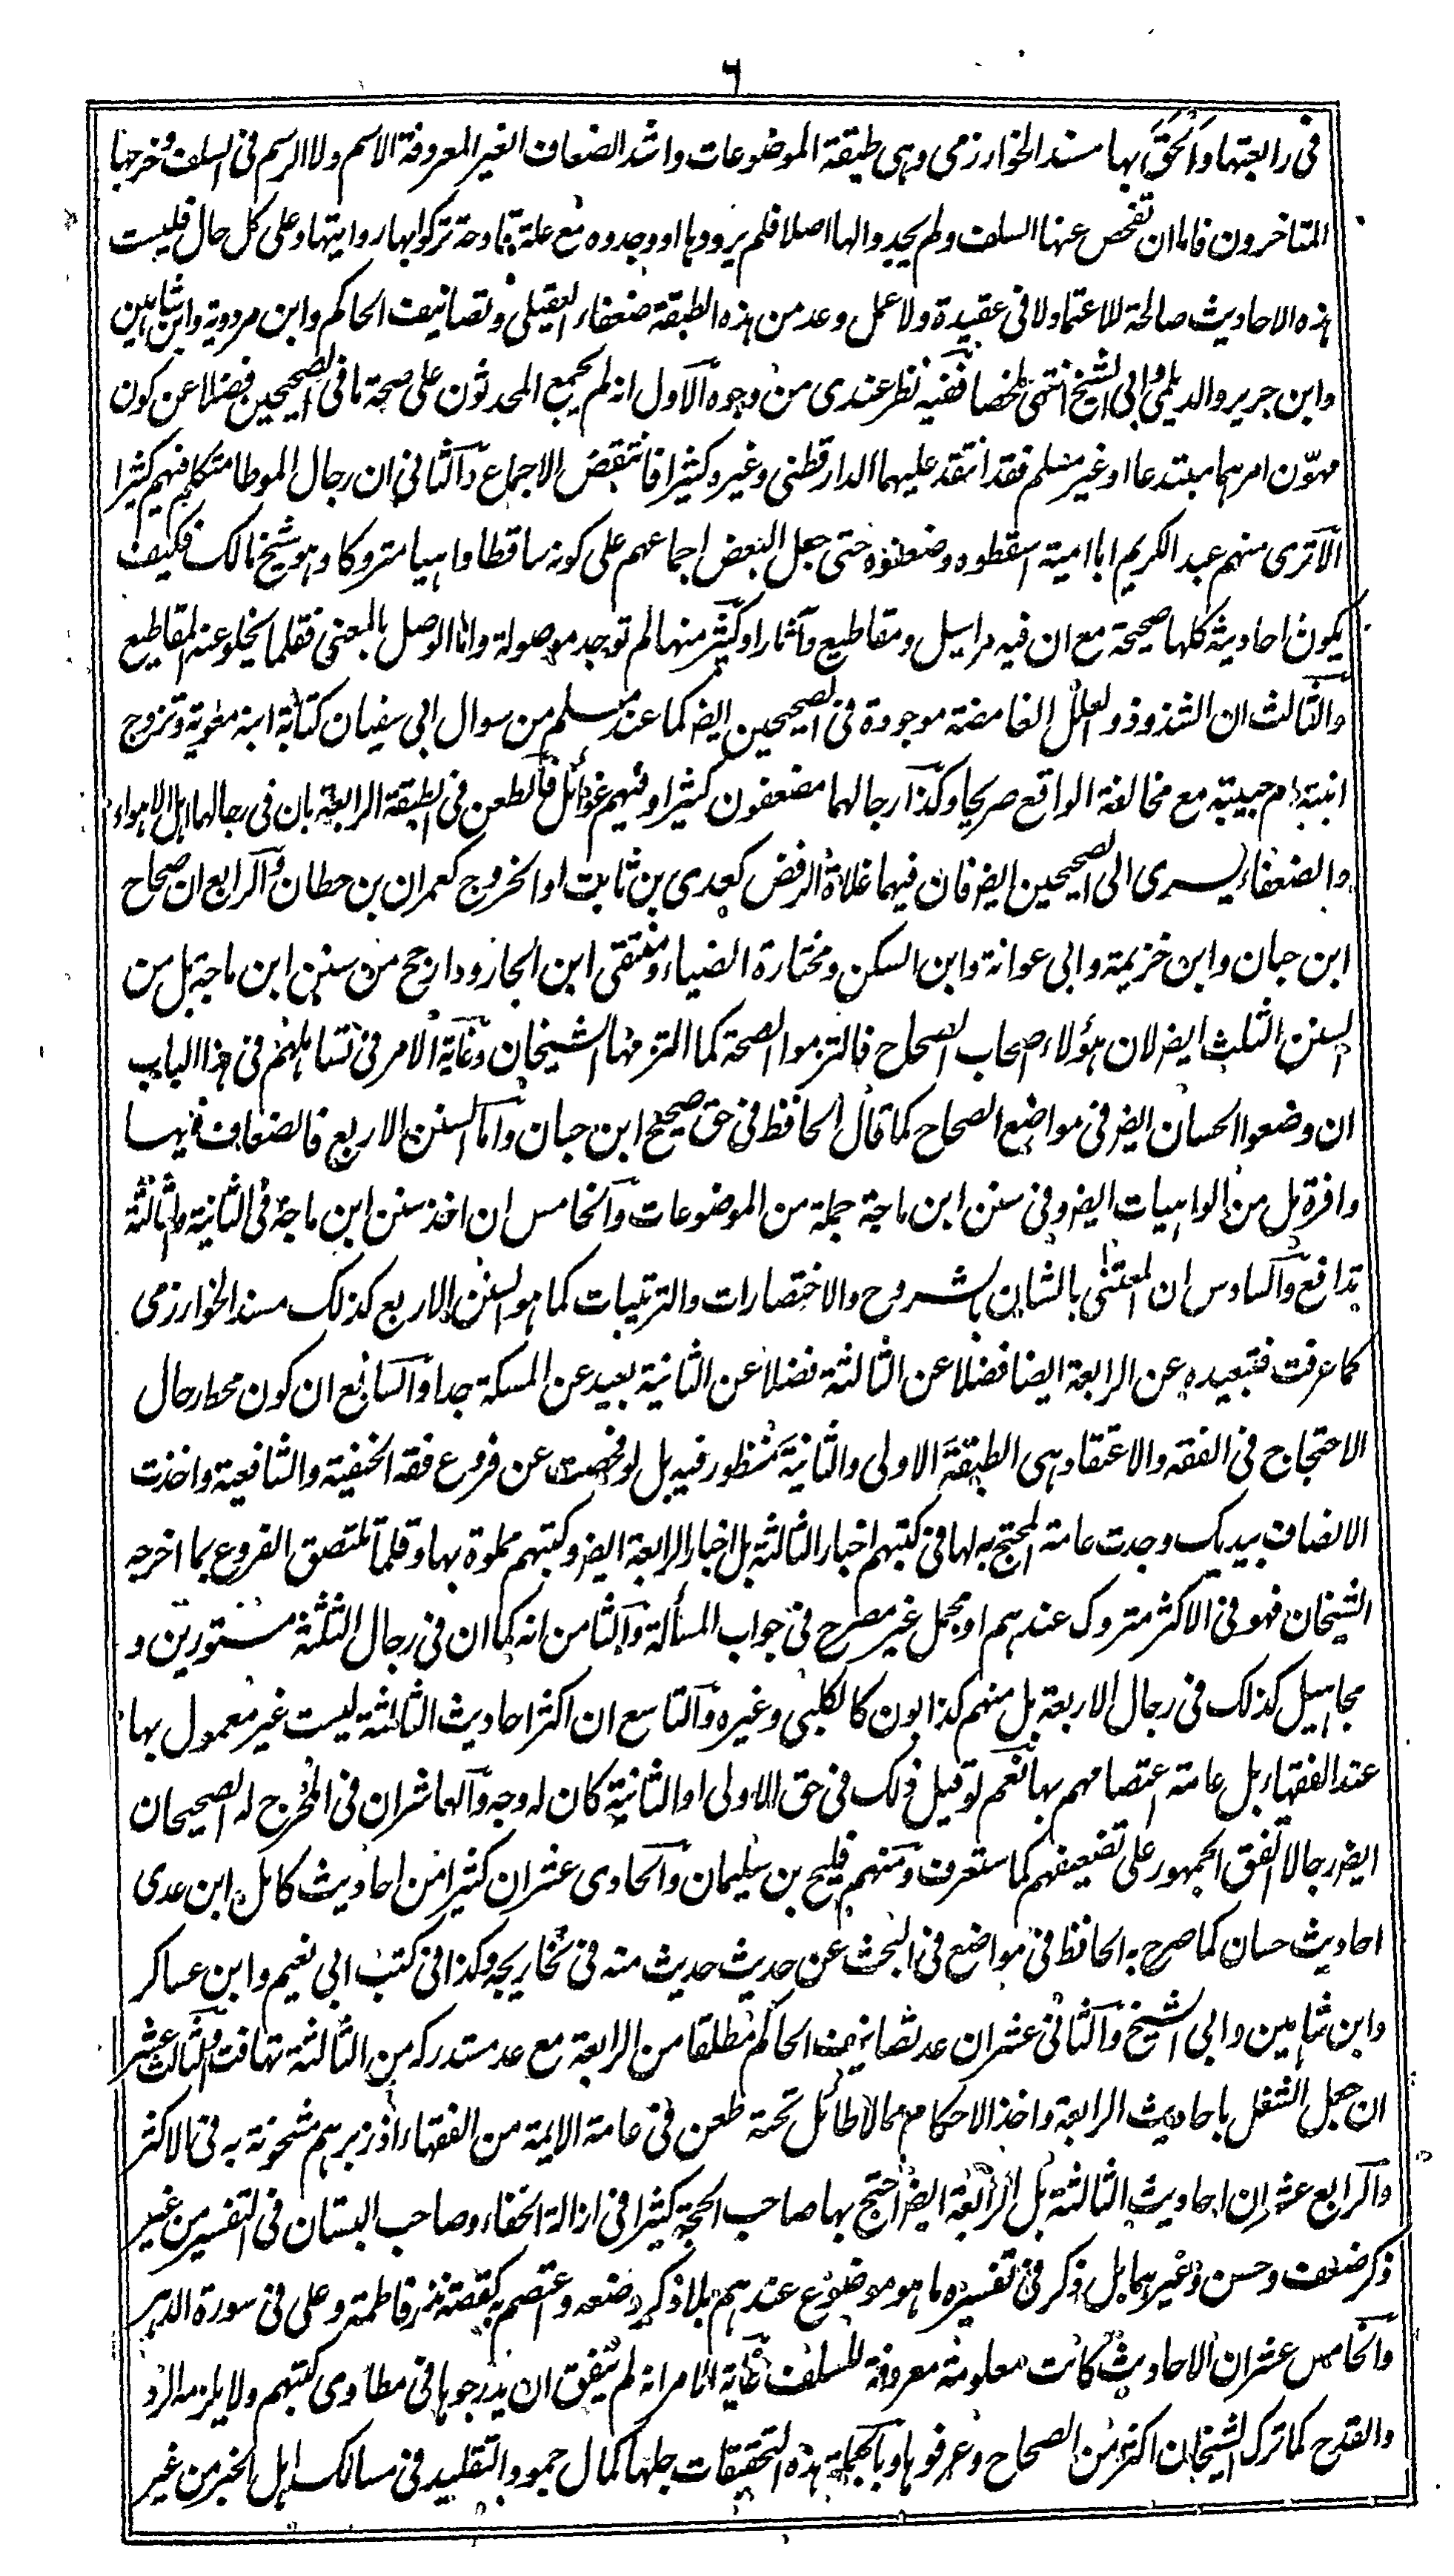 ٦
فى رابعتها والحق بها مسند الخوارزمى وهى طبقة الموضوعات واشد الضعاف الغير المعروفة الاسم ولا الرسم فى السلف وخرجها
المتاخرون فاما ان تفحص عنها السلف ولم يجدوا لها اصلا فلم يرووها او وجدوه مع علة قادحة تركوا بها روايتها وعلى كل حال فليست
هذه الاحاديث صالحة للاعتماد لا فى عقيدة ولا عمل وعد من هذه الطبقة ضعفاء العقيلى وتصانيف الحاكم وابن مردوية وابن شاهين
وابن جرير والديلمى وابى الشيخ انتهى ملخصا ففيه نظر عندى من وجوه الاول انه لم يجمع المحدثون على صحة ما فى الصحيحين فضلا عن كون
مهوّن امرهما مبتدعا او غير مسلم فقد انتقد عليهما الدارقطنى وغيره كثيرا فانتقض الاجماع والثانى ان رجال الموطا متكلم فيهم كثيرا
الا ترى منهم عبد الكريم ابا امية اسقطوه وضعفوه حتى جعل البعض اجماعهم على كونه ساقطا واهيا متروكا وهو شيخ مالك فكيف
يكون احاديثه كلها صحيحة مع ان فيه مراسيل ومقاطيع وآثارا وكثير منها لم توجد موصولة واما الوصل بالمعنى فقلما يخلو عنه المقاطيع
والثالث ان الشذوذ والعلل الغامضة موجودة فى الصحيحين ايضا كما عند مسلم من سوال ابى سفيان كتابة ابنه معوية وتزوج
ابنته ام حبيبة مع مخالفة الواقع صريحا وكذا رجالهما مضعفون كثيرا وفيهم غوائل فالطعن فى الطبقة الرابعة بان فى رجالها اهل الاهواء
والضعفاء يسرى الى الصحيحين ايضا فان فيهما غلاة الرفض كعدى بن ثابت او الخروج كعمران بن حطان والرابع ان صحاح
ابن حبان وابن خزيمة وابى عوانة وابن السكن ومختارة الضياء ومنتقى ابن الجارود ارجح من سنن ابن ماجة بل من
السنن الثلث ايضا لان هؤلاء اصحاب الصحاح فالتزموا الصحة كما التزمها الشيخان وغاية الامر فى تساهلهم فى هذا الباب
ان وضعوا الحسان ايضا فى مواضع الصحاح كما قال الحافظ فى حق صحيح ابن حبان واما السنن الاربع فالضعاف فيها
وافرة بل من الواهيات ايضا وفى سنن ابن ماجة جملة من الموضوعات والخامس ان اخذ سنن ابن ماجة فى الثانية والثالثة
تدافع والسادس ان المعتنى بالشان بالشروح والاختصارات والترتيبات كما هو السنن الاربع كذلك مسند الخوارزمى
كما عرفت فتبعيده عن الرابعة ايضا فضلا عن الثالثة فضلا عن الثانية بعيد عن المسكة جدا والسابع ان كون محط رحال
الاحتجاج فى الفقه والاعتقاد هى الطبقة الاولى والثانية منظور فيه بل لو فحصت عن فروع فقه الحنفية والشافعية واخذت
الانصاف بيديك وجدت عامة المحتج به لها فى كتبهم اخبار الثالثة بل اخبار الرابعة ايضا وكتبهم مملوة بها وقلما تلتصق الفروع بما اخرجه
الشيخان فهو فى الاكثر متروك عندهم او مجمل غير مصرح فى جواب المسألة والثامن انه كما ان فى رجال الثلثة مستورين و
مجاهيل كذلك فى رجال الاربعة بل منهم كذابون كالكلبى وغيره والتاسع ان اكثر احاديث الثالثة ليست غير معمول بها
عند الفقهاء بل عامة اعتصامهم بها نعم لو قيل ذلك فى حق الاولى او الثانية كان له وجه والعاشر ان فى المخرج له الصحيحان
ايضا رجالا اتفق الجمهور على تضعيفهم كما ستعرف ومنهم فليح بن سليمان والحادى عشر ان كثيرا من احاديث كامل ابن عدى
احاديث حسان كما صرح به الحافظ فى مواضع فى البحث عن حديث حديث منه فى تخاريجه وكذا فى كتب ابى نعيم وابن عساكر
وابن شاهين وابى الشيخ والثانى عشر ان عد تصانيف الحاكم مطلقا من الرابعة مع عد مستدركه من الثالثة تهافت والثالث عشر
ان جعل الشغل باحاديث الرابعة واخذ الاحكام مما لا طائل تحته طعن فى عامة الايمة من الفقهاء اذ زبرهم مشحونة به فى الاكثر
والرابع عشر ان احاديث الثالثة بل الرابعة ايضا احتج بها صاحب الحجة كثيرا فى ازالة الخفاء وصاحب البستان فى التفسير من غير
ذكر ضعف وحسن وغيرهما بل ذكر فى تفسيره ما هو موضوع عندهم بلا ذكر وضعه واعتصم به كقصة نذر فاطمة وعلى فى سورة الدهر
والخامس عشر ان الاحاديث كانت معلومة معروفة للسلف غاية الامر انه لم يتفق ان يدرجوها فى مطاوى كتبهم ولا يلزمه الرد
والقدح كما ترك الشيخان اكثر من الصحاح وعرفوها وبالجملة هذه التحقيقات جلها كمال جمود التقليد فى مسالك اهل الخبر من غير